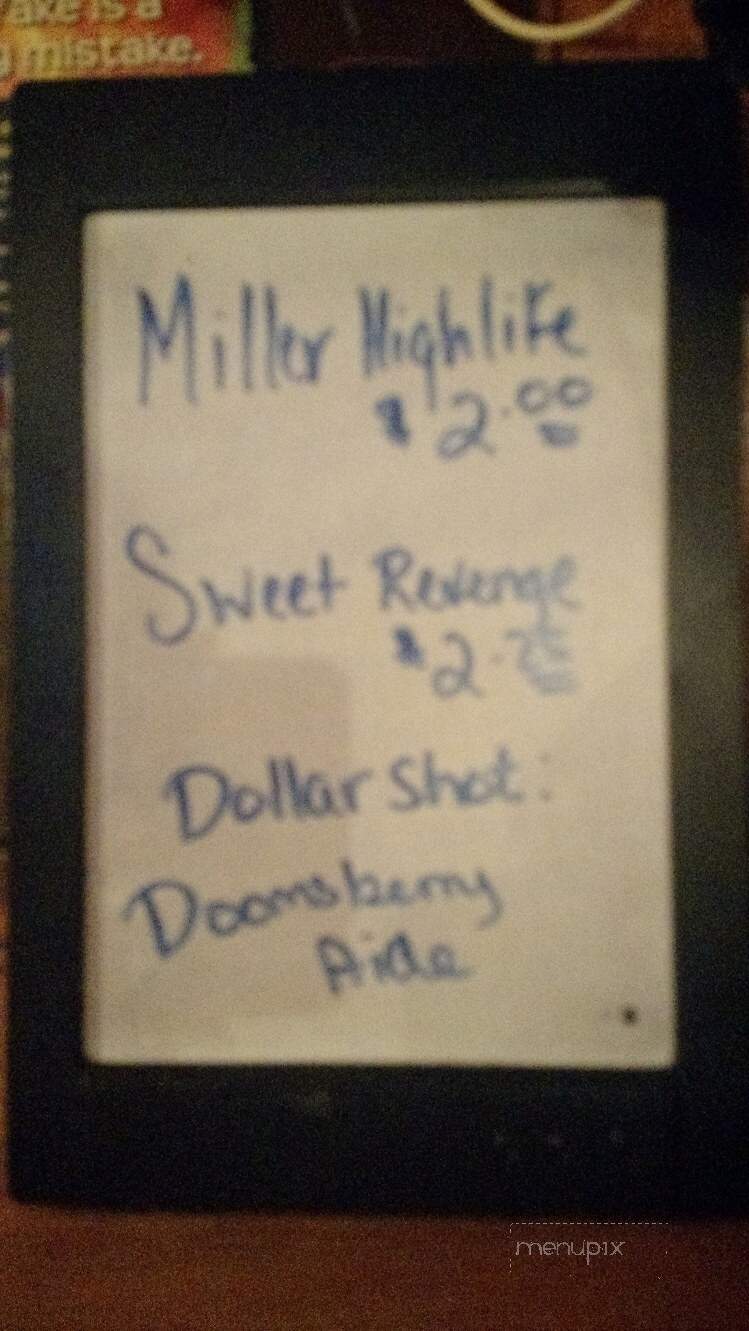 ake is a
mistake.
Miller Highlife
$2.00
Sweet Revenge
$2.75
Dollar Shot:
Doomsberry
Aide
menupix